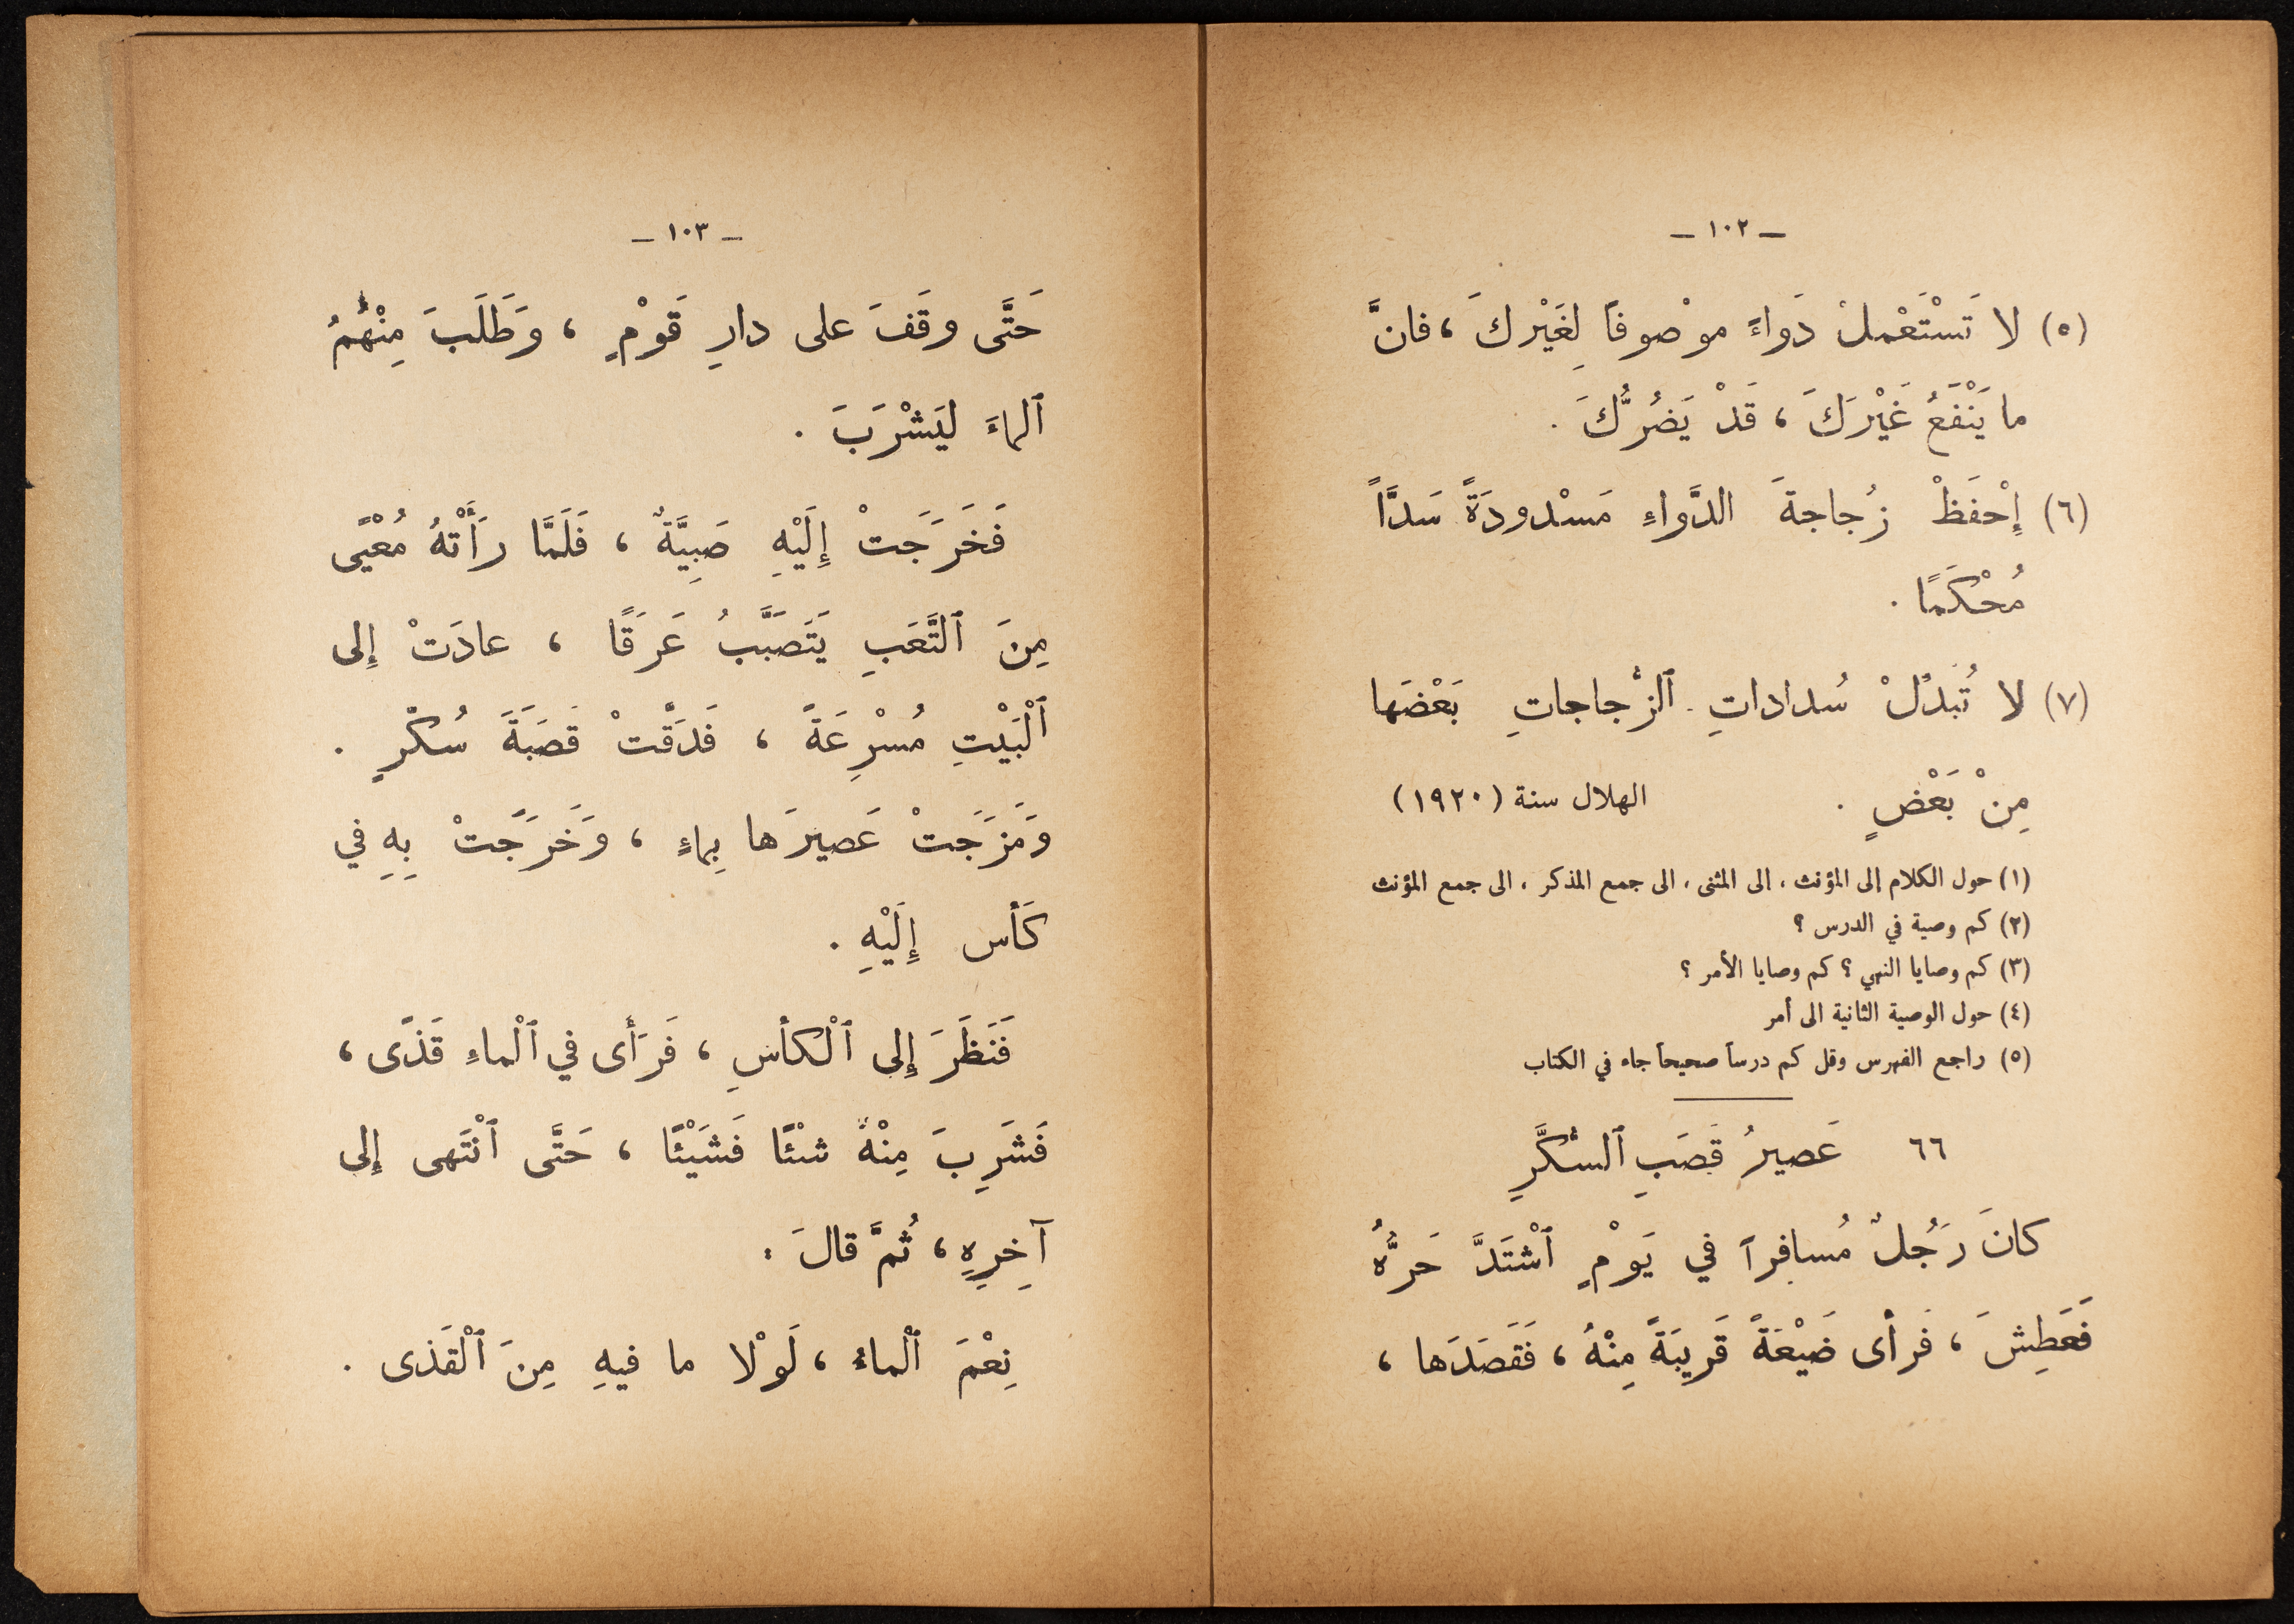 — ١٠٢ —
(٥) لا تَسْتَعْملْ دَواءً موْصوفاً لِغَيْركَ ، فانَّ
ما يَنْفَعُ غَيْرَكَ ، قَدْ يَضُرُّكَ .
(٦) إِحْفَظْ زُجاجةَ الدَّواءِ مَسْدودَةً سَدَّاً
مُحْكَمًا .
(٧) لا تُبدلْ سُداداتِ ٱلزُّجاجاتِ بَعْضَها
مِنْ بَعْضٍ . الهلال سنة (١٩٢٠)
(١) حول الكلام إلى المؤنث ، الى المثنى ، الى جمع المذكر ، الى جمع المؤنث
(٢) كم وصية في الدرس ؟
(٣) كم وصايا النهي ؟ كم وصايا الأمر ؟
(٤) حول الوصية الثانية الى أمر
(٥) راجع الفهرس وقل كم درساً صحيحاً جاء في الكتاب
٦٦ عَصيرُ قَصَبِ ٱلسُّكَّرِ
كانَ رَجُلٌ مُسافِراً في يَوْمٍ ٱشْتَدَّ حَرُّهُ
فَعَطِشَ ، فرأى ضَيْعَةً قَرِيبَةً مِنْهُ ، فَقَصَدَها ،
— ١٠٣ —
حَتَّى وقَفَ على دارِ قَوْمٍ ، وَطَلَبَ مِنْهُمُ
ٱلماءَ ليَشْرَبَ .
فَخَرَجَتْ إِلَيْهِ صَبِيَّةٌ ، فَلَمَّا رَأَتْهُ مُعْيًى
مِنَ ٱلتَّعَبِ يَتَصَبَّبُ عَرَقًا ، عادَتْ إِلى
ٱلْبَيْتِ مُسْرِعَةً ، فَدَقَّتْ قَصَبَةَ سُكْرٍ .
وَمَزَجَتْ عَصيرَها بِماءٍ ، وَخَرَجَتْ بِهِ في
كَأس إِلَيْهِ .
فَنَظَرَ إِلى ٱلْكأسِ ، فَرَأى في ٱلْماءِ قَذًى ،
فَشَرِبَ مِنْهُ شئًا فَشَيْئًا ، حَتَّى ٱنْتَهى إِلى
آخِرِهِ ، ثُمَّ قالَ :
نِعْمَ ٱلْماءُ ، لَوْلا ما فيهِ مِنَ ٱلْقَذى .